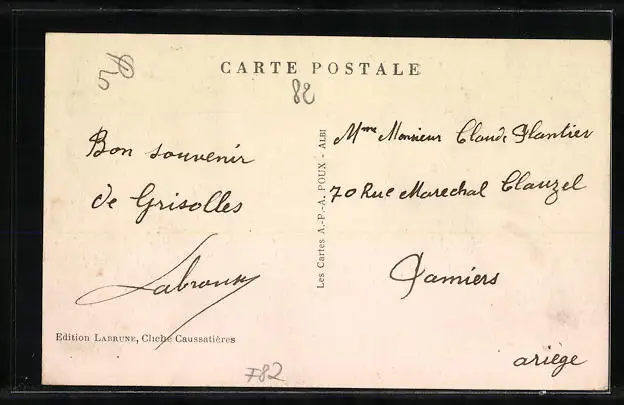 50
CARTE POSTALE
82
Bon souvenir
de Grisolles
Labroux
Mme Monsieur Claude Plantier
70 Rue Marechal Clauzel
Pamiers
ariège
Les Cartes A.-P.-A. POUX - ALBI
Edition LABRUNE, Cliche Caussatières
F82